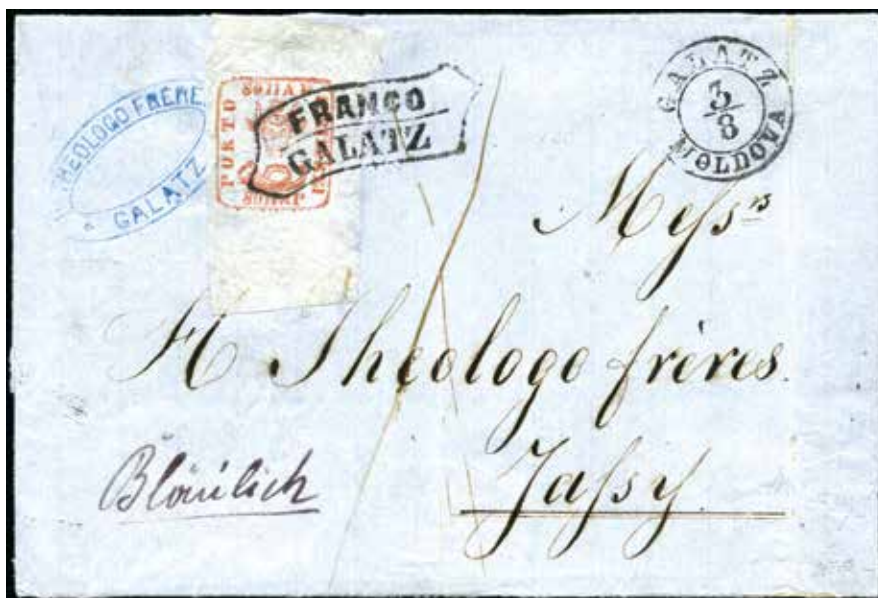 THEOLOGO FRÈRE
GALATZ
PORTO
FRANCO
GALATZ
GALATZ
3/8
MOLDOVA
Messrs
Theologo frères.
Jassy
Bläulich